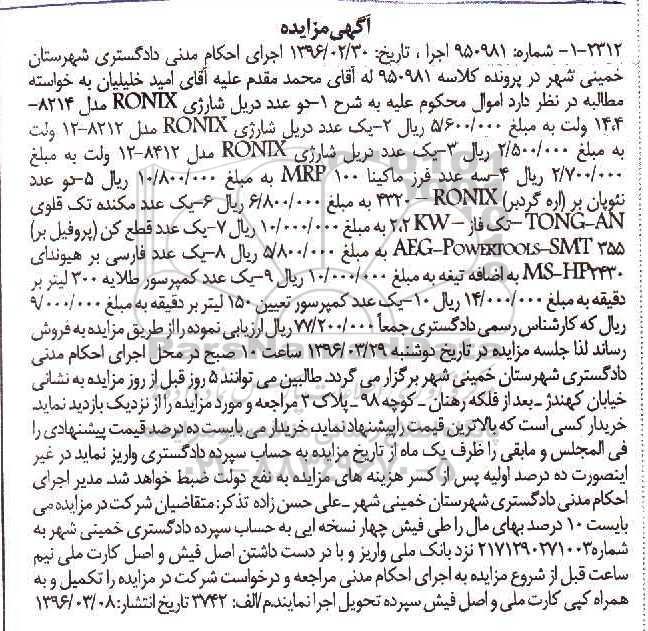 آگهی مزایده
۲۳۱۲-۱- شماره: ۹۵۰۹۸۱ اجرا ، تاریخ: ۱۳۹۶/۰۲/۳۰ اجرای احکام مدنی دادگستری شهرستان
خمینی شهر در پرونده کلاسه ۹۵۰۹۸۱ له آقای محمد مقدم علیه آقای امید خلیلیان به خواسته
مطالبه در نظر دارد اموال محکوم علیه به شرح ۱-دو عدد دریل شارژی RONIX مدل ۸۲۱۴-
۱۴،۴ ولت به مبلغ ۵/۶۰۰/۰۰۰ ریال ۲-یک عدد دریل شارژی RONIX مدل ۸۲۱۲-۱۲ ولت
به مبلغ ۲/۵۰۰/۰۰۰ ریال ۳-یک عدد دریل شارژی RONIX مدل ۸۴۱۲-۱۲ ولت به مبلغ
۲/۷۰۰/۰۰۰ ریال ۴-سه عدد فرز ماکیتا MRP ۱۰۰ به مبلغ ۱۰/۸۰۰/۰۰۰ ریال ۵-دو عدد
نئوپان بر (اره گردبر) RONIX – ۴۳۲۰ به مبلغ ۶/۸۰۰/۰۰۰ ریال ۶-یک عدد مکنده تک قلوی
TONG–AN –تک فاز – ۲،۲ KW به مبلغ ۱۰/۰۰۰/۰۰۰ ریال ۷-یک عدد قطع کن (پروفیل بر)
AEG–POWERTOOLS–SMT ۳۵۵ به مبلغ ۵/۸۰۰/۰۰۰ ریال ۸-یک عدد فارسی بر هیوندای
MS–HP۲۴۳۰ به اضافه تیغه به مبلغ ۱۰/۰۰۰/۰۰۰ ریال ۹-یک عدد کمپرسور طلایه ۳۰۰ لیتر بر
دقیقه به مبلغ ۱۴/۰۰۰/۰۰۰ ریال ۱۰-یک عدد کمپرسور تعیین ۱۵۰ لیتر بر دقیقه به مبلغ ۹/۰۰۰/۰۰۰
ریال که کارشناس رسمی دادگستری جمعاً ۷۷/۲۰۰/۰۰۰ ریال ارزیابی نموده را از طریق مزایده به فروش
رساند لذا جلسه مزایده در تاریخ دوشنبه ۱۳۹۶/۰۳/۲۹ ساعت ۱۰ صبح در محل اجرای احکام مدنی
دادگستری شهرستان خمینی شهر برگزار می گردد. طالبین می توانند ۵ روز قبل از روز مزایده به نشانی
خیابان کهندژ –بعد از فلکه رهنان – کوچه ۹۸ –پلاک ۳ مراجعه و مورد مزایده را از نزدیک بازدید نماید.
خریدار کسی است که بالاترین قیمت را پیشنهاد نماید، خریدار می بایست ده درصد قیمت پیشنهادی را
فی المجلس و مابقی را ظرف یک ماه از تاریخ مزایده به حساب سپرده دادگستری واریز نماید در غیر
اینصورت ده درصد اولیه پس از کسر هزینه های مزایده به نفع دولت ضبط خواهد شد. مدیر اجرای
احکام مدنی دادگستری شهرستان خمینی شهر –علی حسن زاده تذکر: متقاضیان شرکت در مزایده می
بایست ۱۰ درصد بهای مال را طی فیش چهار نسخه ایی به حساب سپرده دادگستری خمینی شهر به
شماره۲۱۷۱۲۹۰۲۷۱۰۰۳ نزد بانک ملی واریز و با در دست داشتن اصل فیش و اصل کارت ملی نیم
ساعت قبل از شروع مزایده به اجرای احکام مدنی مراجعه و درخواست شرکت در مزایده را تکمیل و به
همراه کپی کارت ملی و اصل فیش سپرده تحویل اجرا نمایند.م/الف: ۳۷۴۲ تاریخ انتشار: ۱۳۹۶/۰۳/۰۸
ParsNamadData
۰۲۱-۸۸۳۴۹۶۷۰-۵